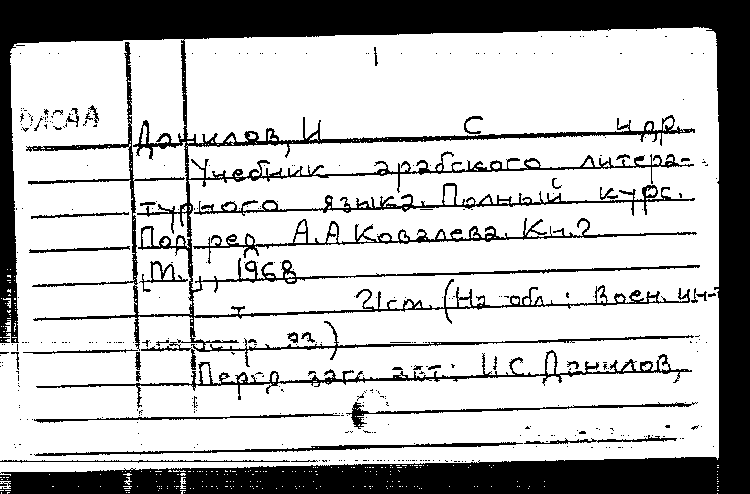 I
Данилов, И С и др.
Учебник арабского литера-
турного языка. Полный курс.
Под ред А.А. Ковалева. Кн. 2
[М.], 1968
т. 21см. (На обл.: Воен. ин-т
иностр. яз.)
Перед загл. авт: И.С. Данилов,